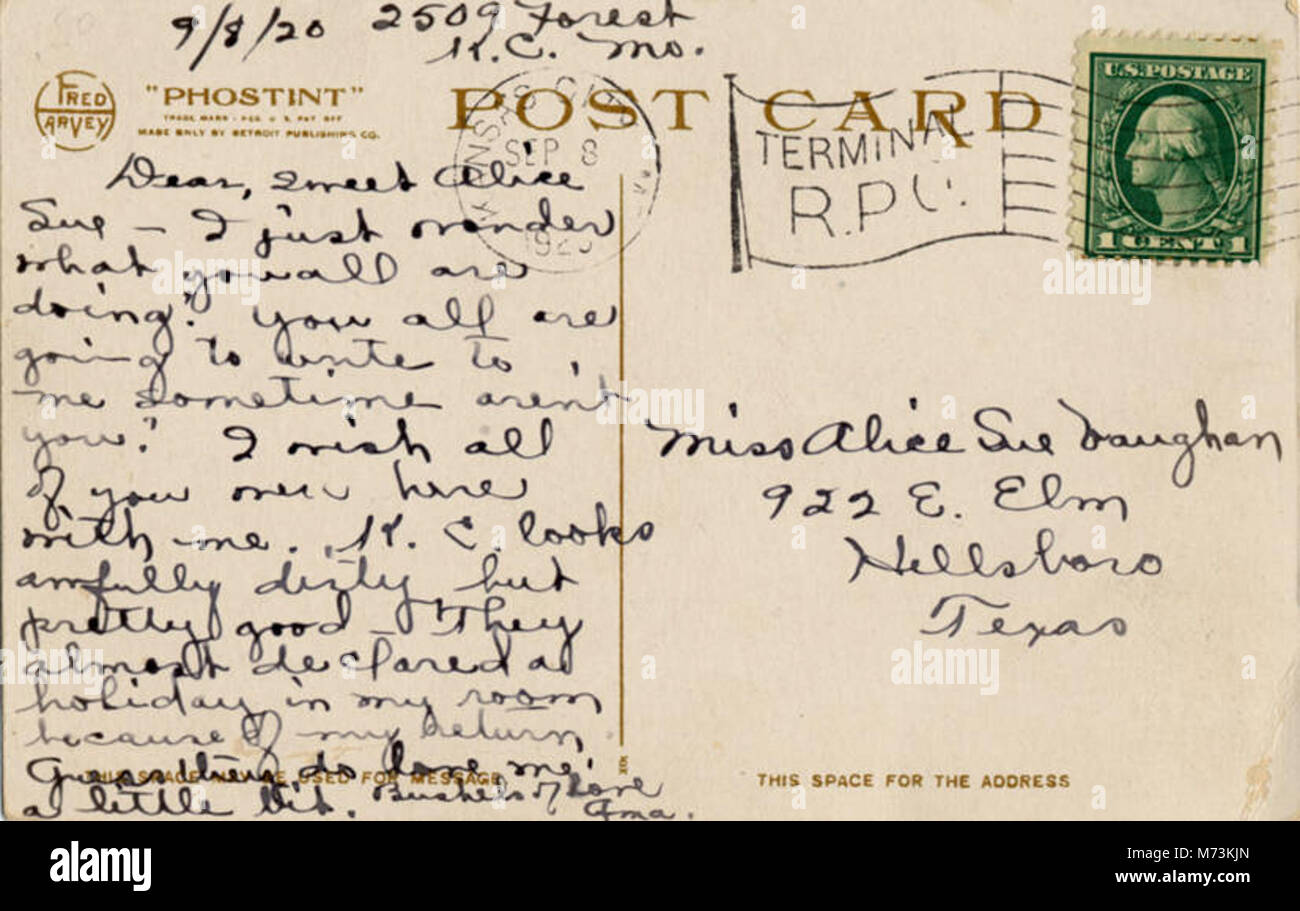 9/8/20 2509 Forest
K.C. Mo.
FRED HARVEY
"PHOSTINT"
TRADE MARK - REG. U.S. PAT. OFF.
MADE ONLY BY DETROIT PUBLISHING CO.
POST CARD
KANSAS CITY
SEP 8
1920
TERMINAL
R.P.O.
U.S. POSTAGE
1 CENT 1
Dear, sweet Alice
Sue — I just wonder
what you all are
doing? You all are
going to write to
me sometime aren't
you? I wish all
of you were here
with me. K. C. looks
awfully dirty but
pretty good — They
almost declared a
holiday in my room
because of my return
Guess they do love me
a little bit. Bushels of love
Ama.
Miss Alice Sue Vaughan
922 E. Elm
Hillsboro
Texas
THIS SPACE MAY BE USED FOR MESSAGE
THIS SPACE FOR THE ADDRESS
alamy
Image ID: M73KJN
www.alamy.com